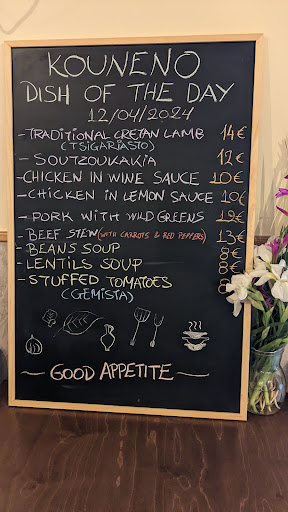 KOUNENO
DISH OF THE DAY
12/04/2024
- TRADITIONAL CRETAN LAMB 14€
(TSIGARIASTO)
- SOUTZOUKAKIA 12€
- CHICKEN IN WINE SAUCE 10€
- CHICKEN IN LEMON SAUCE 10€
- PORK WITH WILD GREENS 12€
- BEEF STEW (WITH CARROTS & RED PEPPERS) 13€
- BEANS SOUP 8€
- LENTILS SOUP 8€
- STUFFED TOMATOES 8
(GEMISTA)
GOOD APPETITE